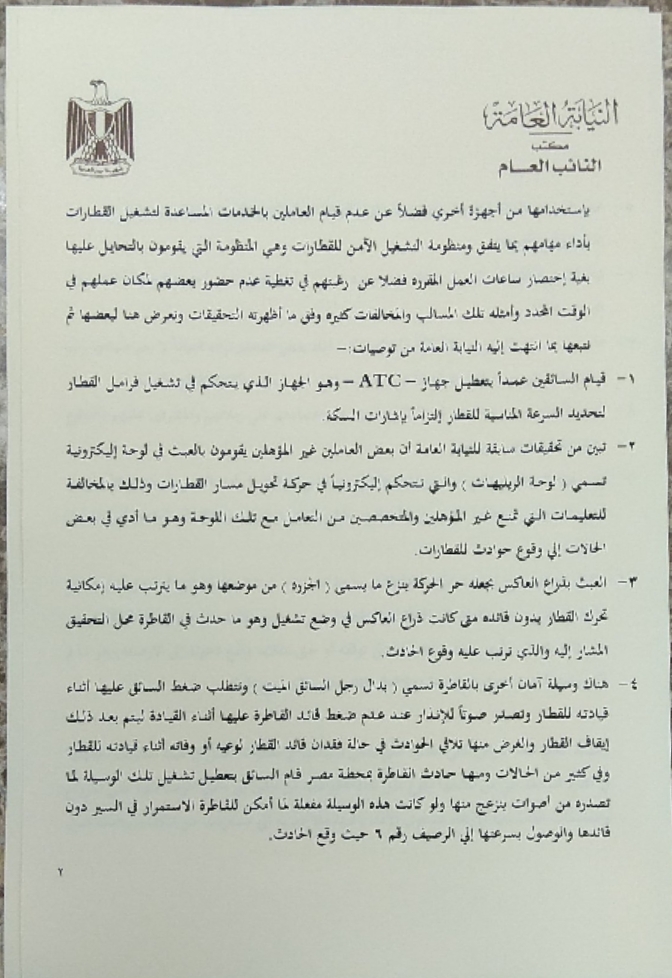 النيابة العامة
مكتب
النائب العـــام
بإستخدامها من أجهزة أخري فضلاً عن عدم قيام العاملين بالخدمات المساعدة لتشغيل القطارات
بأداء مهامهم بما يتفق ومنظومة التشغيل الآمن للقطارات وهي المنظومة التي يقومون بالتحايل عليها
بغية إختصار ساعات العمل المقرره فضلا عن رغبتهم في تغطية عدم حضور بعضهم لمكان عملهم في
الوقت المحدد وأمثله تلك المسالب والمخالفات كثيره وفق ما أظهرته التحقيقات ونعرض هنا لبعضها ثم
نتبعها بما انتهت إليه النيابة العامة من توصيات:–
١– قيام السائقين عمداً بتعطيل جهاز – ATC – وهو الجهاز الذي يتحكم في تشغيل فرامل القطار
لتحديد السرعة المناسبة للقطار إلتزاماً بإشارات السكة.
٢– تبين من تحقيقات سابقة للنيابة العامة أن بعض العاملين غير المؤهلين يقومون بالعبث في لوحة إليكترونية
تسمي ( لوحة الريليهات ) والتي تتحكم إليكترونياً في حركة تحويل مسار القطارات وذلك بالمخالفة
للتعليمات التي تمنع غير المؤهلين والمتخصصين من التعامل مع تلك اللوحة وهو ما أدي في بعض
الحالات إلي وقوع حوادث للقطارات.
٣– العبث بذراع العاكس بجعله حر الحركة بنزع ما يسمى ( الجزره ) من موضعها وهو ما يترتب عليه إمكانية
تحرك القطار بدون قائده متى كانت ذراع العاكس في وضع تشغيل وهو ما حدث في القاطرة محل التحقيق
المشار إليه والذي ترتب عليه وقوع الحادث.
٤– هناك وسيلة آمان أخرى بالقاطرة تسمي ( بدال رجل السائق الميت ) وتتطلب ضغط السائق عليها أثناء
قيادته للقطار وتصدر صوتاً للإنذار عند عدم ضغط قائد القاطرة عليها أثناء القيادة ليتم بعد ذلك
إيقاف القطار والغرض منها تلافي الحوادث في حالة فقدان قائد القطار لوعيه أو وفاته أثناء قيادته للقطار
وفي كثير من الحالات ومنها حادث القاطرة بمحطة مصر قام السائق بتعطيل تشغيل تلك الوسيلة لما
تصدره من أصوات ينزعج منها ولو كانت هذه الوسيلة مفعلة لما أمكن للقاطرة الاستمرار في السير دون
قائدها والوصول بسرعتها إلي الرصيف رقم ٦ حيث وقع الحادث.
٢